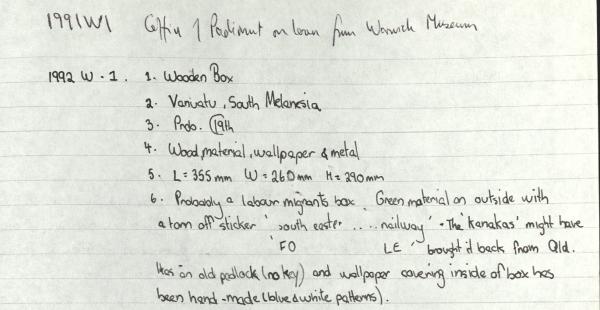 1991W1 Coffin of Padimut on loan from Warwick Museum
1992 W.1. 1. Wooden Box
2. Vanuatu, South Melanesia
3. Prob. 19th
4. Wood, material, wallpaper & metal
5. L = 355mm W = 260mm H = 290mm
6. Probably a labour migrants box. Green material on outside with
a torn off sticker 'south easter .... railway'. The 'Kanakas' might have
'FO LE' brought it back from Qld.
Has an old padlock (no key) and wallpaper covering inside of box has
been hand-made (blue & white patterns).